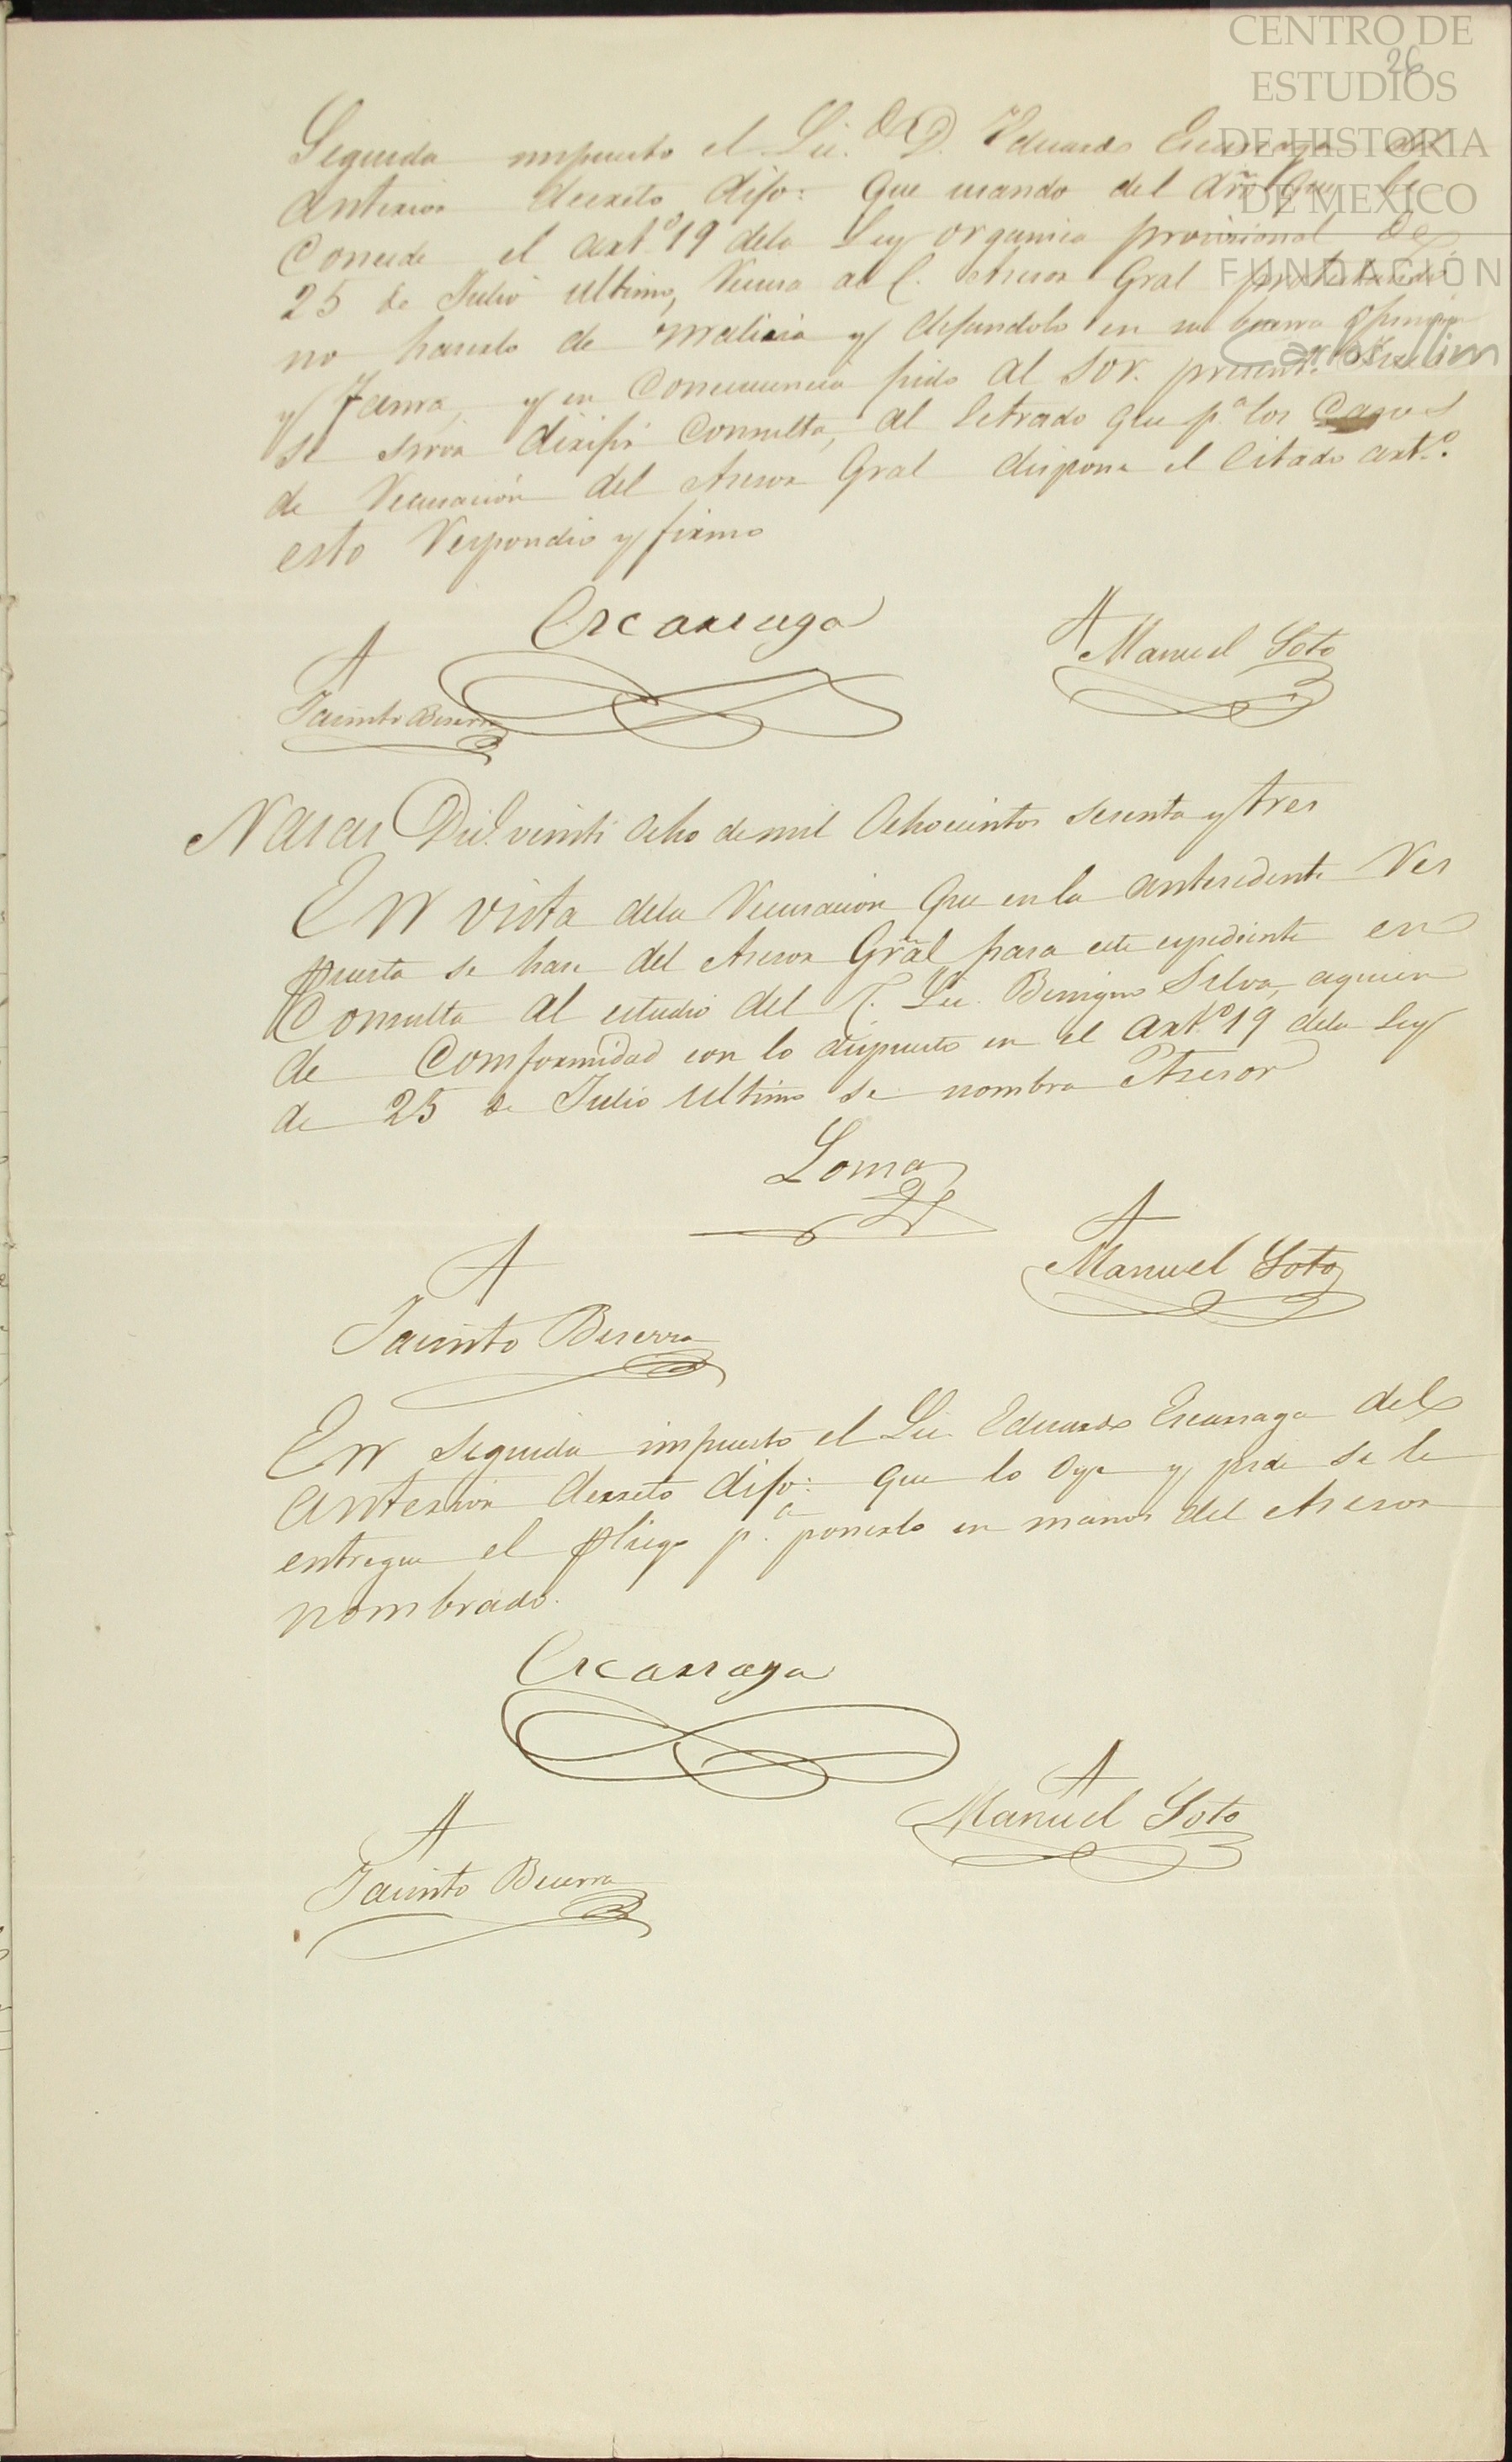 CENTRO DE
ESTUDIOS
DE HISTORIA
DE MEXICO
FUNDACIÓN
Carlos Slim
26
Seguida impuesto el Lic. D. Eduardo Escarraga del
anterior decreto dijo: que usando del que le
Concede el art.º 19 dela Ley organica provisional de
25 de Julio ultimo, Recusa al C. Asesor Gral protestando
no haserlo de malicia y dejandolo en su buena opinion
y fama, y en Consecuencia pide al Sor. presente
se sirva dirijir Consulta, al letrado que p.ª los Casos
de Recusación del Asesor Gral dispone el Citado art.º
esto Respondio y firmo
Escarraga
A
Manuel Soto
A
Jacinto Beserra
Nasas Dic. veinti ocho de mil Ochocientos sesenta y tres
En vista dela Recusacion que en la antesedente Res
puesta se hase del Asesor Grãl pasa este espediente en
Consulta al estudio del C. Lic. Benigno Silva, aquien
de Comformidad con lo dispuesto en el art.º 19 dela Ley
de 25 de Julio ultimo se nombra Asesor
Loma
A
Manuel Soto
A
Jacinto Beserra
En seguida impuesto el Lic. Eduardo Escarraga del
anterior decreto dijo: que lo oye y pide se le
entregue el pliego p.ª ponerlo en manos del Asesor
nombrado.
Escarraga
A
Manuel Soto
A
Jacinto Becerra